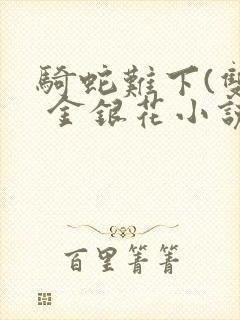 騎蛇難下(雙
金銀花小說
百里菁菁